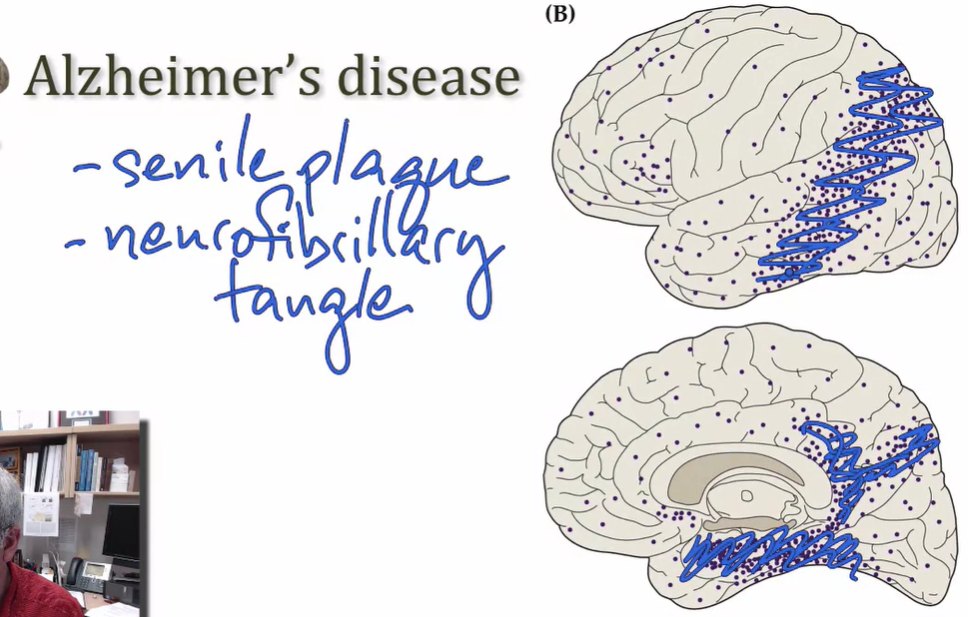 (B)
Alzheimer's disease
- senile plaque
- neurofibrillary
tangle